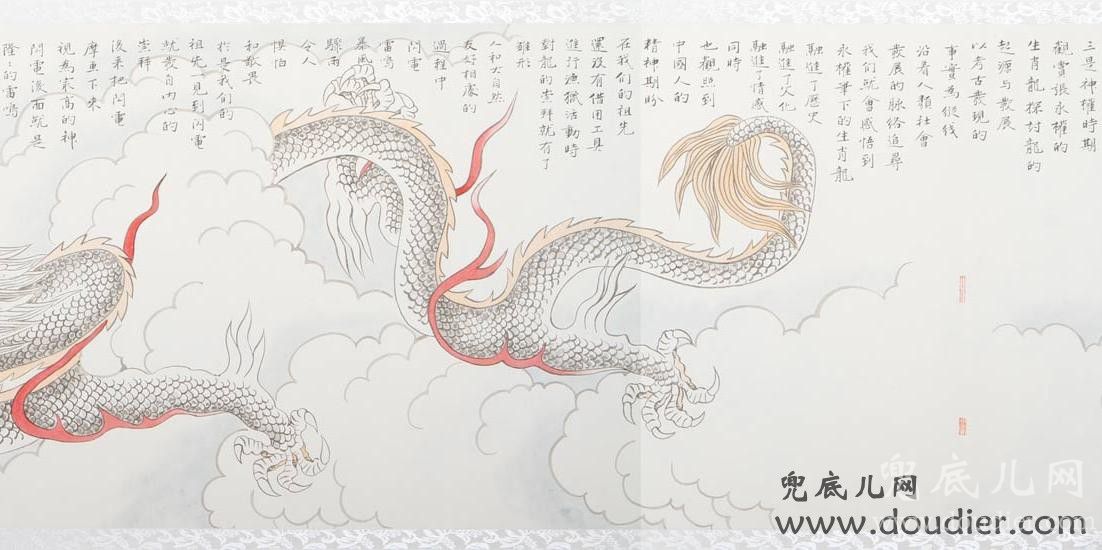 三是神權時期
觀賞張永權的
生肖龍探討龍的
起源与發展
以考古發現的
事實為縱线
沿着人類社會
發展的脉络追尋
我們就會感悟到
永權筆下的生肖龍
融進了歷史
融進了文化
融進了情感
同時
也觀照到
中國人的
精神期盼
在我们的祖先
還沒有借用工具
進行漁獵活動時
對龍的崇拜就有了
雛形
人和大自然
友好相處的
過程中
閃電
雷鳴
暴風
驟雨
令人
惧怕
和敬畏
於是我們的
祖先一見到閃電
就發自内心的
崇拜
後來把閃電
摩画下來
視為冣高的神
閃電後面就是
隆：的雷鳴
兜底儿网
兜底儿网
www.doudier.com